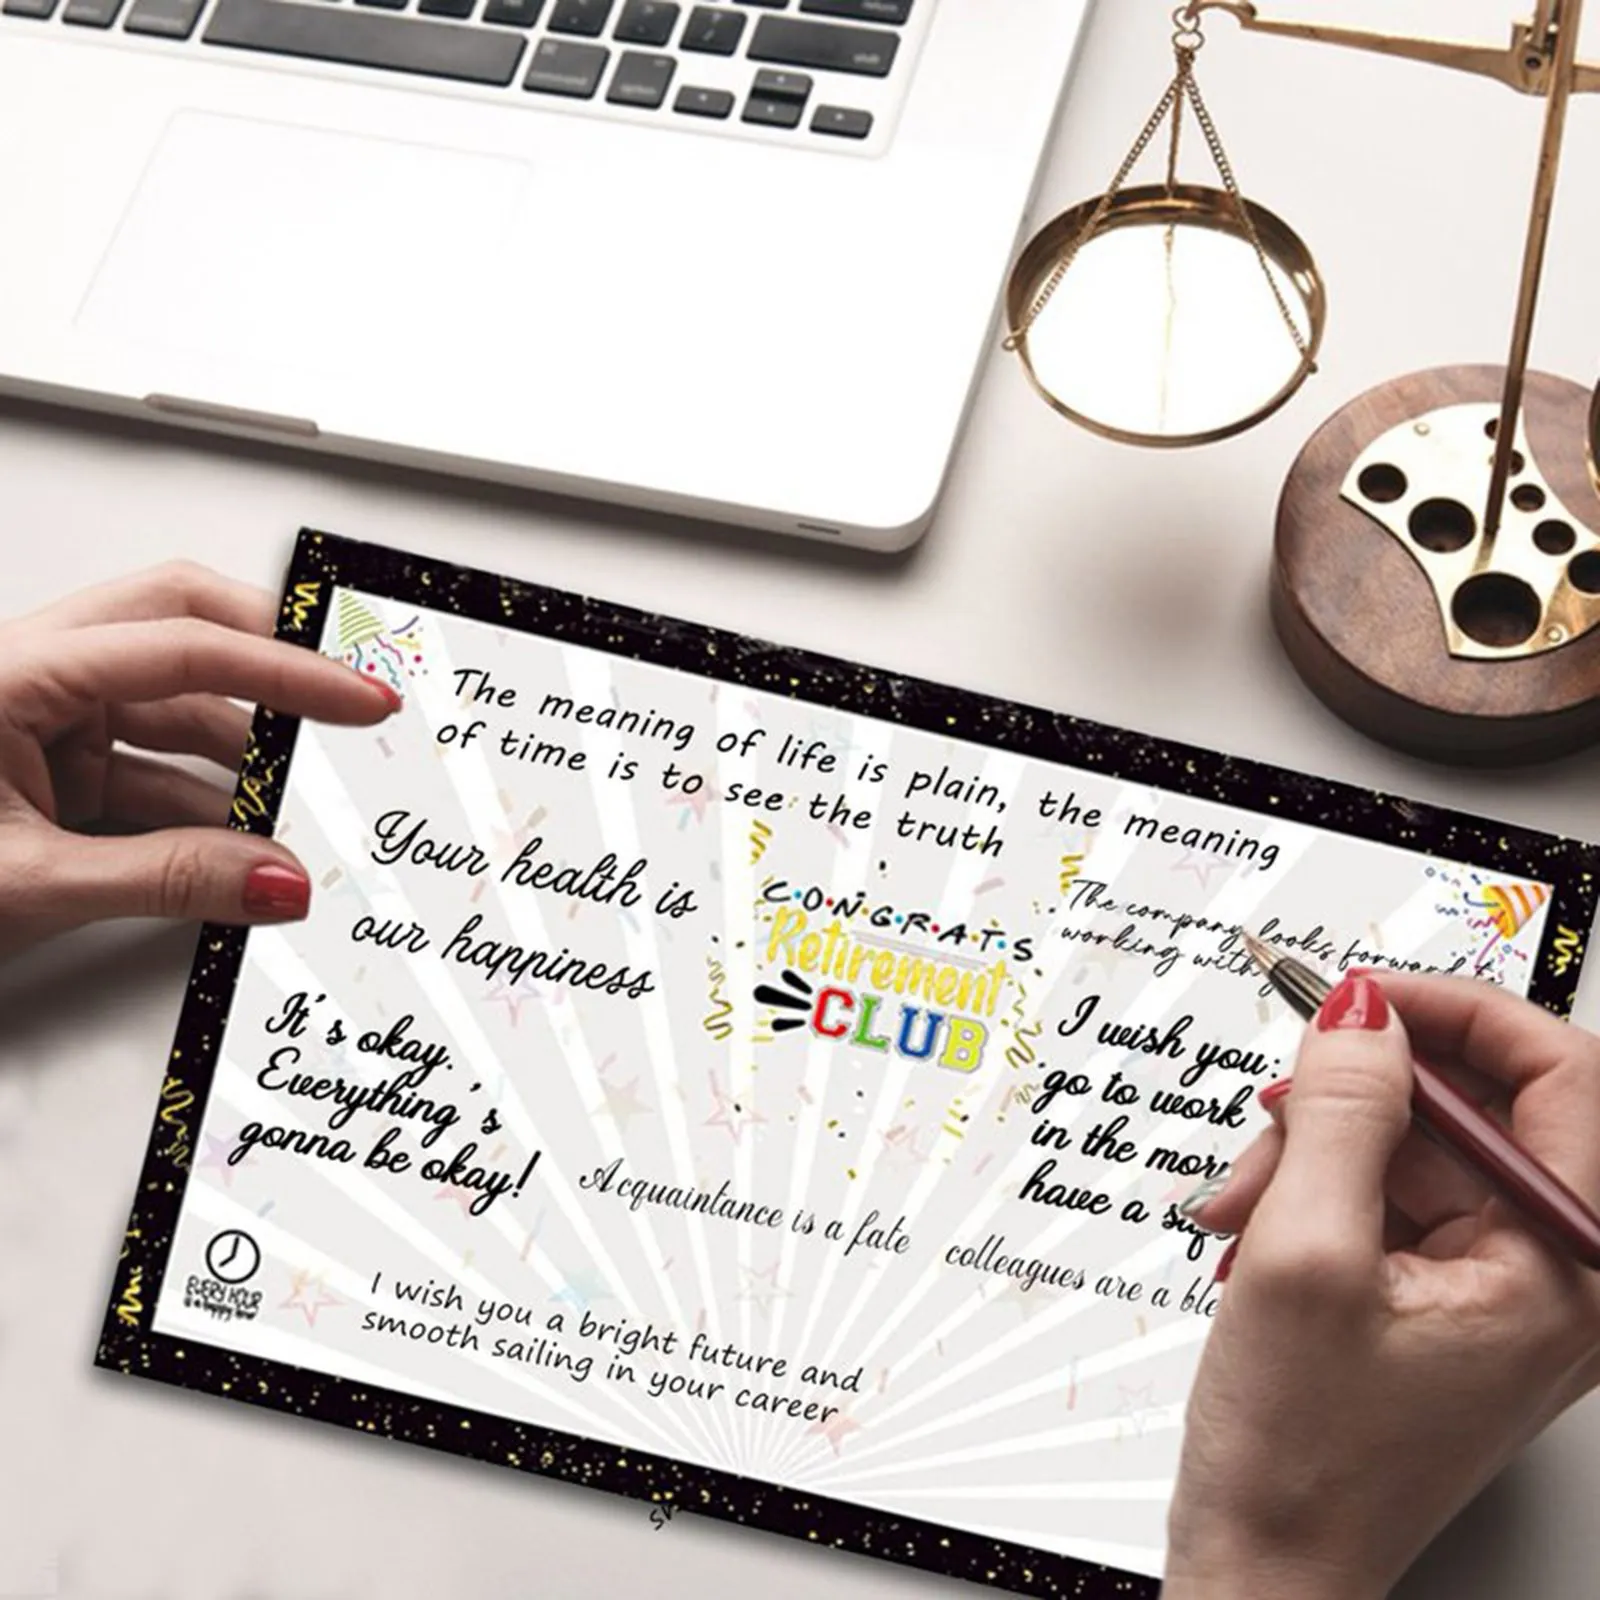 The meaning of life is plain, the meaning
of time is to see the truth
Your health is
our happiness
CONGRATS
Retirement
CLUB
The company looks forward to
working with
I wish you:
go to work
in the mor
have a saf
It's okay.
Everything's
gonna be okay!
Acquaintance is a fate
colleagues are a ble
EVERY HOUR
is a happy hour
I wish you a bright future and
smooth sailing in your career